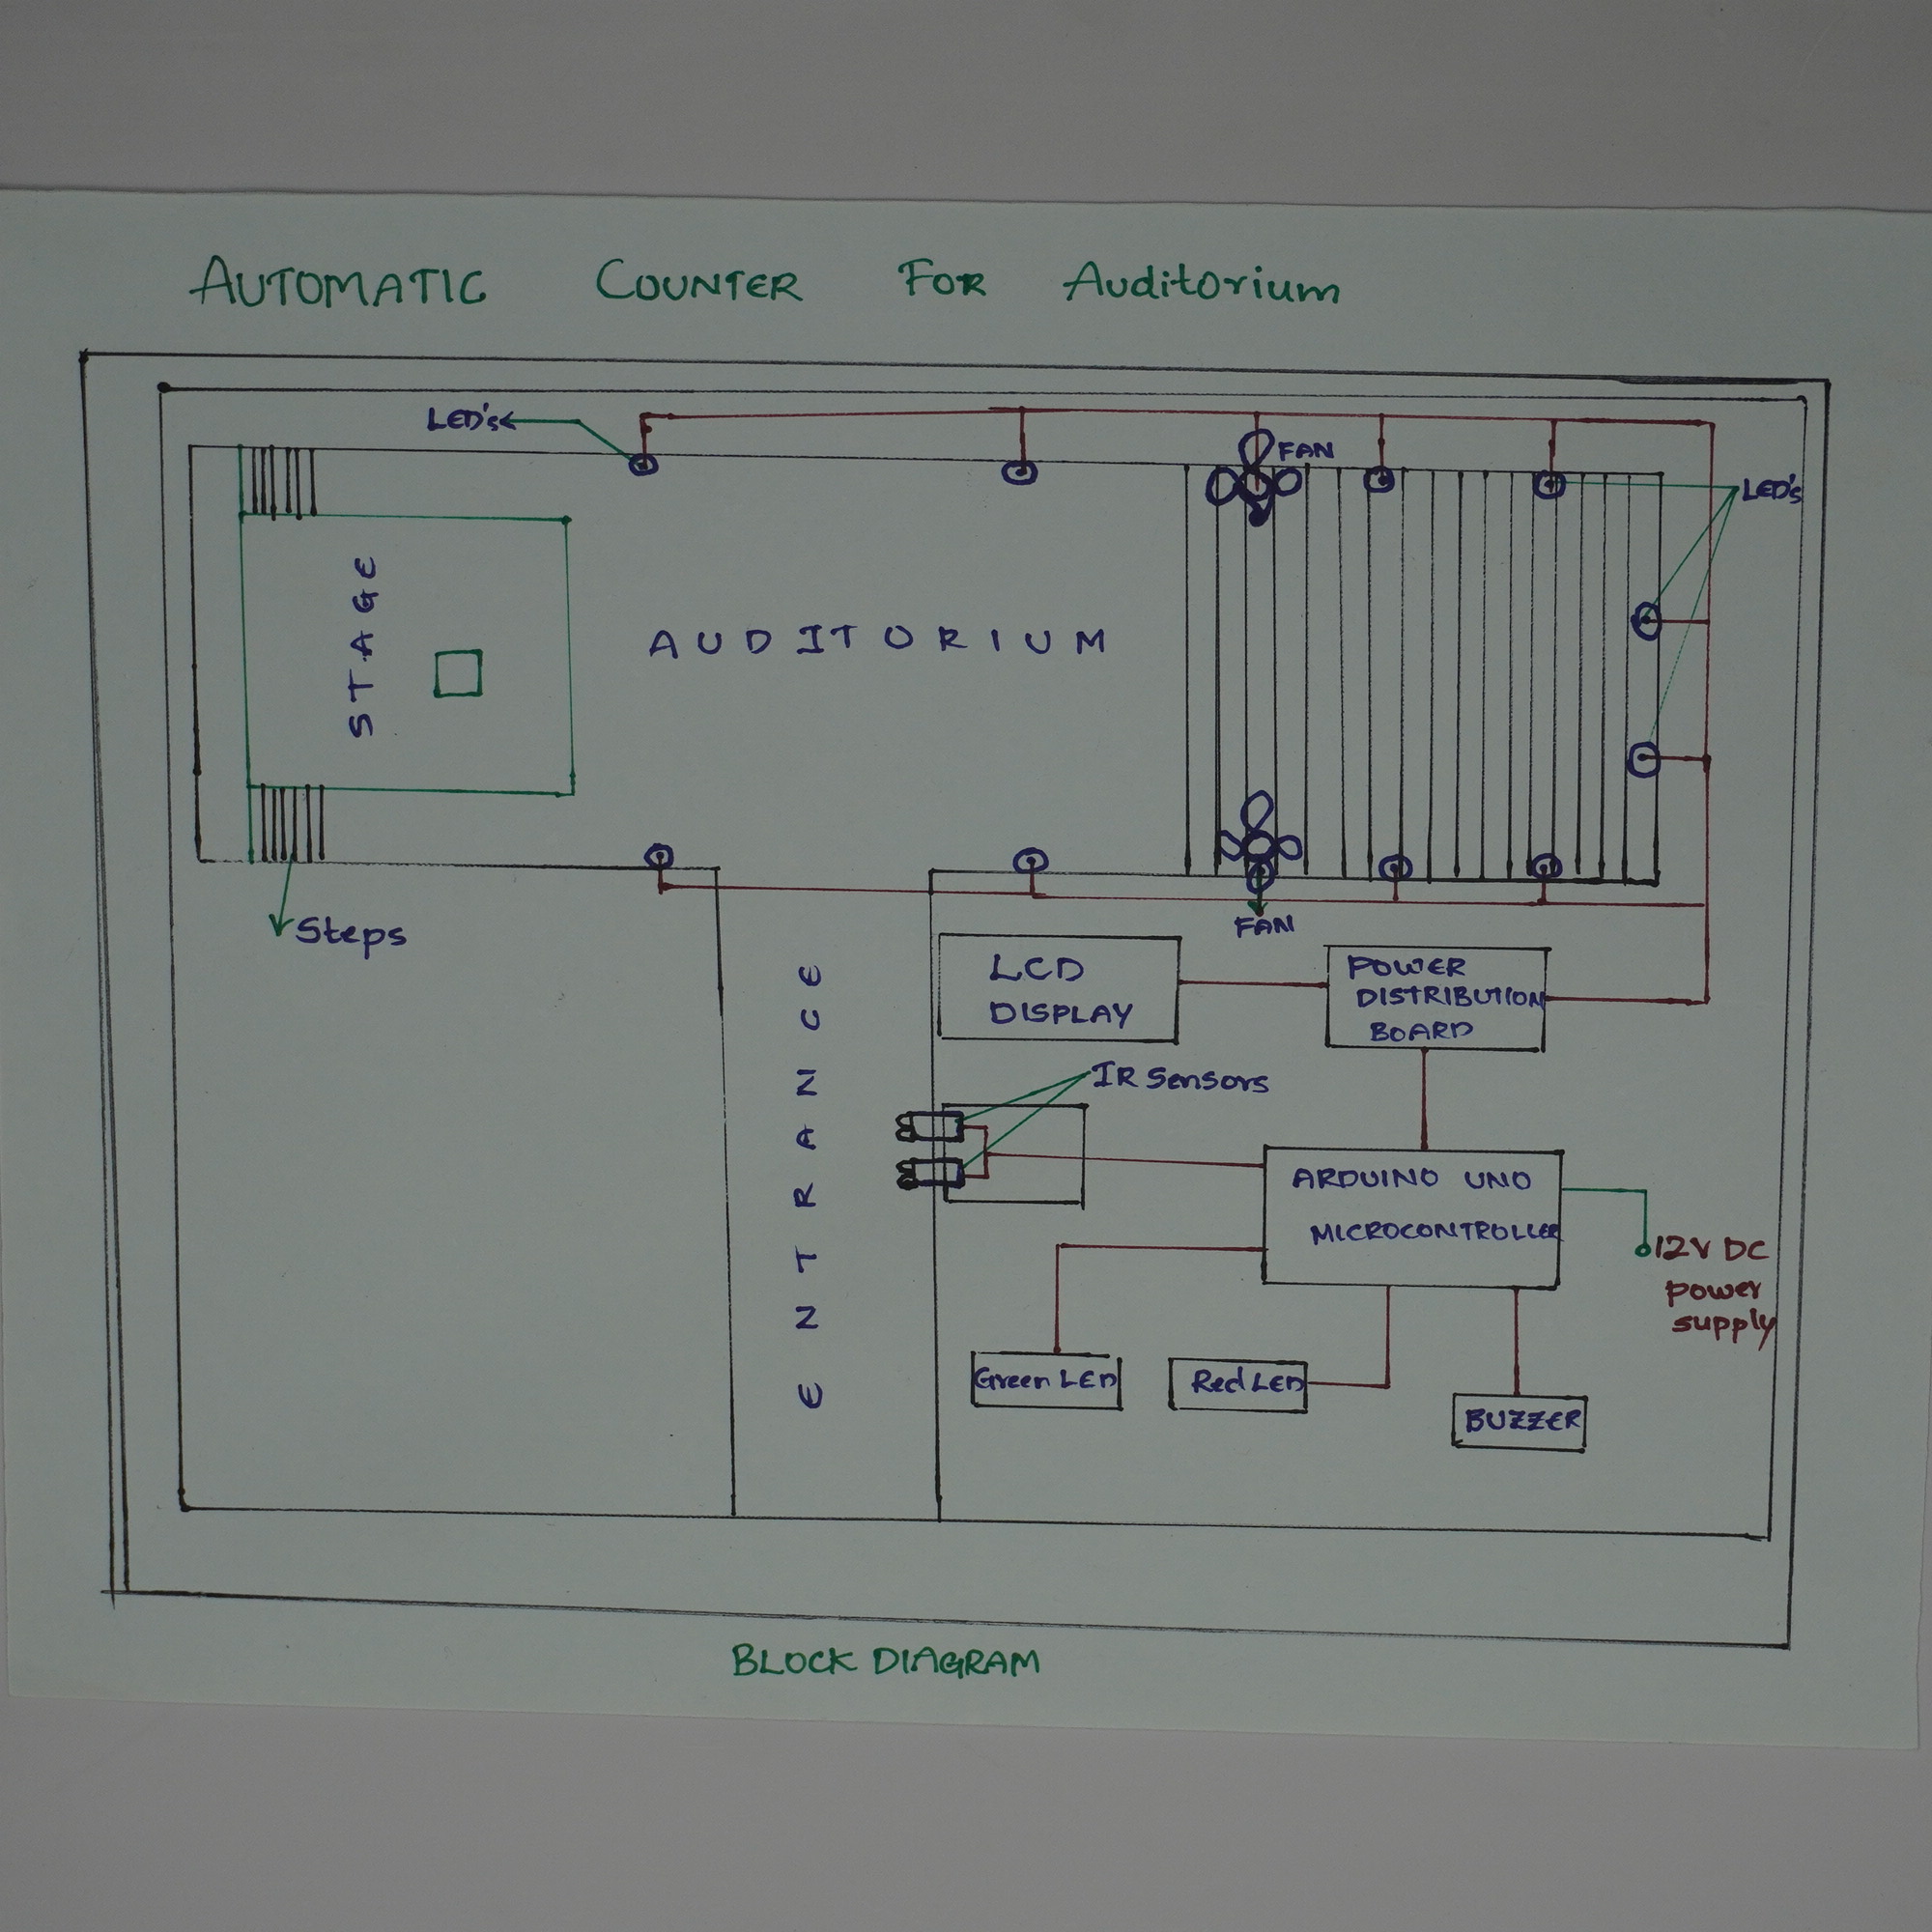 AUTOMATIC COUNTER FOR Auditorium
LED's
FAN
LED's
STAGE
AUDITORIUM
Steps
FAN
ENTRANCE
LCD
DISPLAY
POWER
DISTRIBUTION
BOARD
IR Sensors
ARDUINO UNO
MICROCONTROLLER
12V DC
power
supply
Green LED
Red LED
BUZZER
BLOCK DIAGRAM